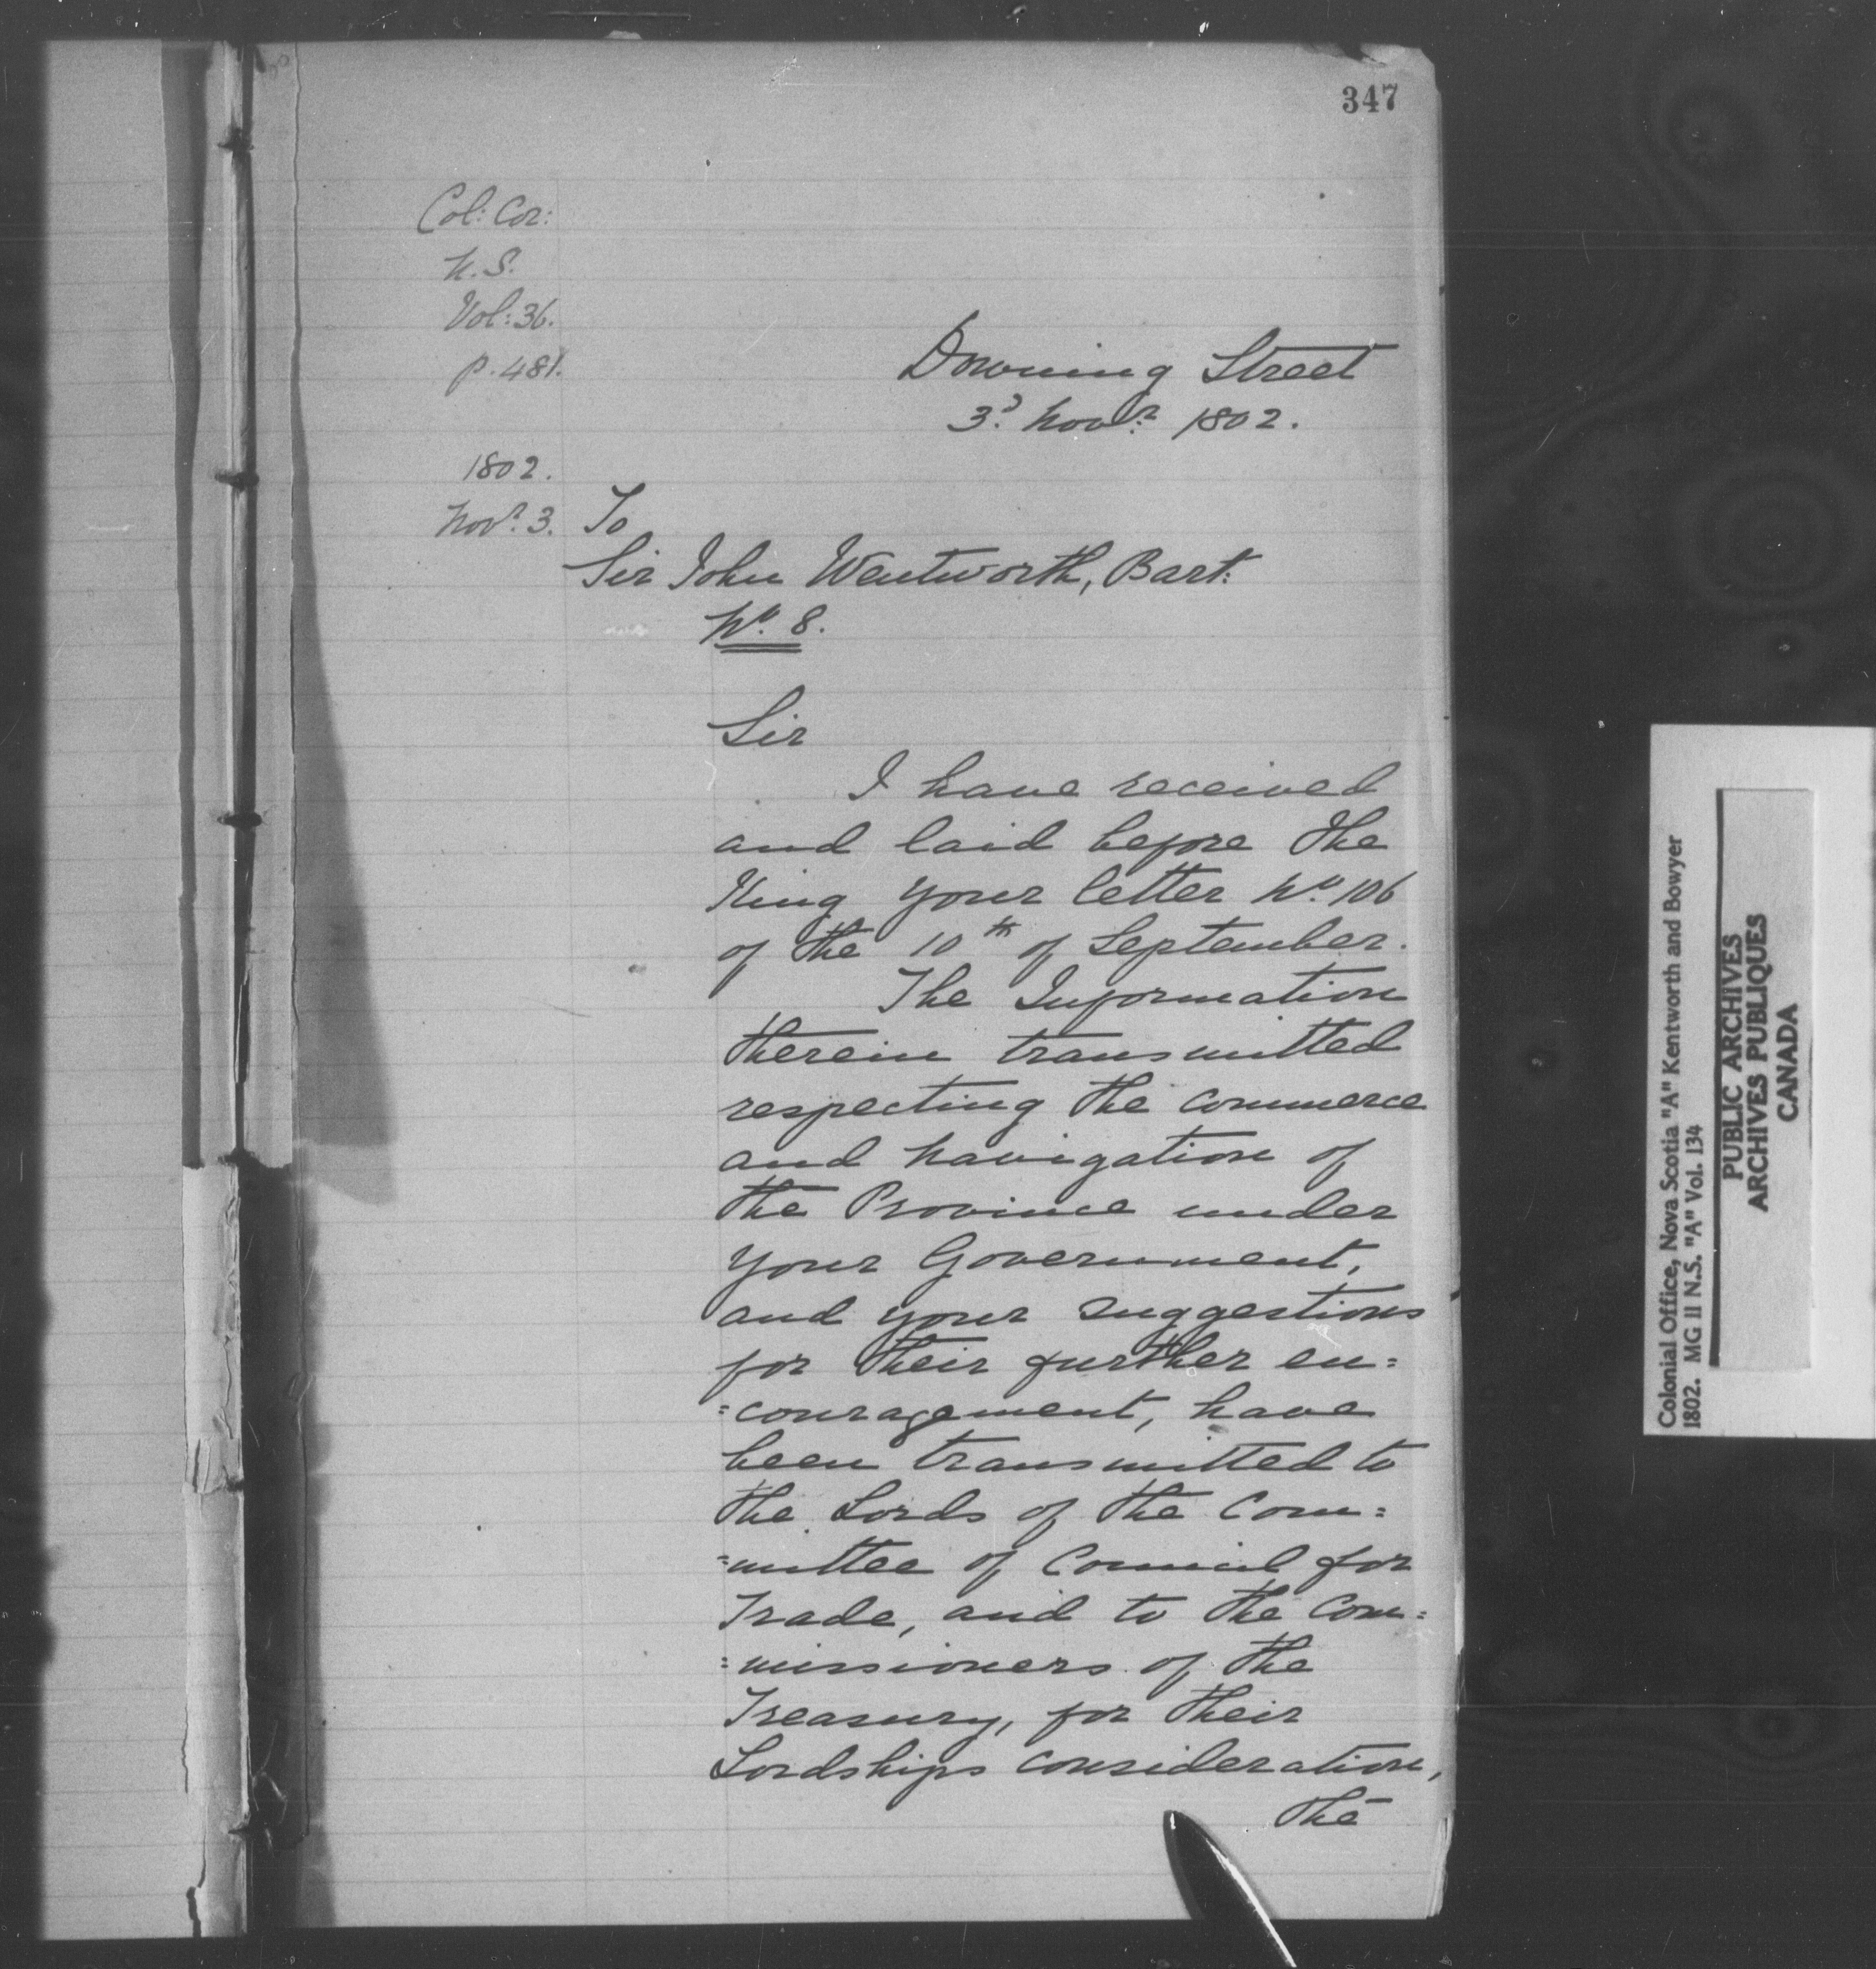 347
Col: Cor:
N.S.
Vol: 36.
p. 481.
Downing Street
3d. Novr. 1802.
1802.
Novr. 3.
To
Sir John Wentworth, Bart:
No. 8.
Sir
I have received
and laid before the
King your letter No. 106
of the 10th of September.
The Information
therein transmitted
respecting the commerce
and navigation of
the Province under
your Government,
and your suggestions
for their further en=
=couragement, have
been transmitted to
the Lords of the Com=
=mittee of Council for
Trade, and to the Com=
=missioners of the
Treasury, for their
Lordships consideration,
the
Colonial Office, Nova Scotia "A" Kentworth and Bowyer
1802. MG II N.S. "A" Vol. 134
PUBLIC ARCHIVES
ARCHIVES PUBLIQUES
CANADA